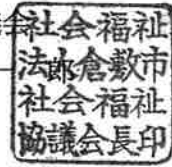 社会福祉
法郎倉敷市
社会福祉
協議会長印